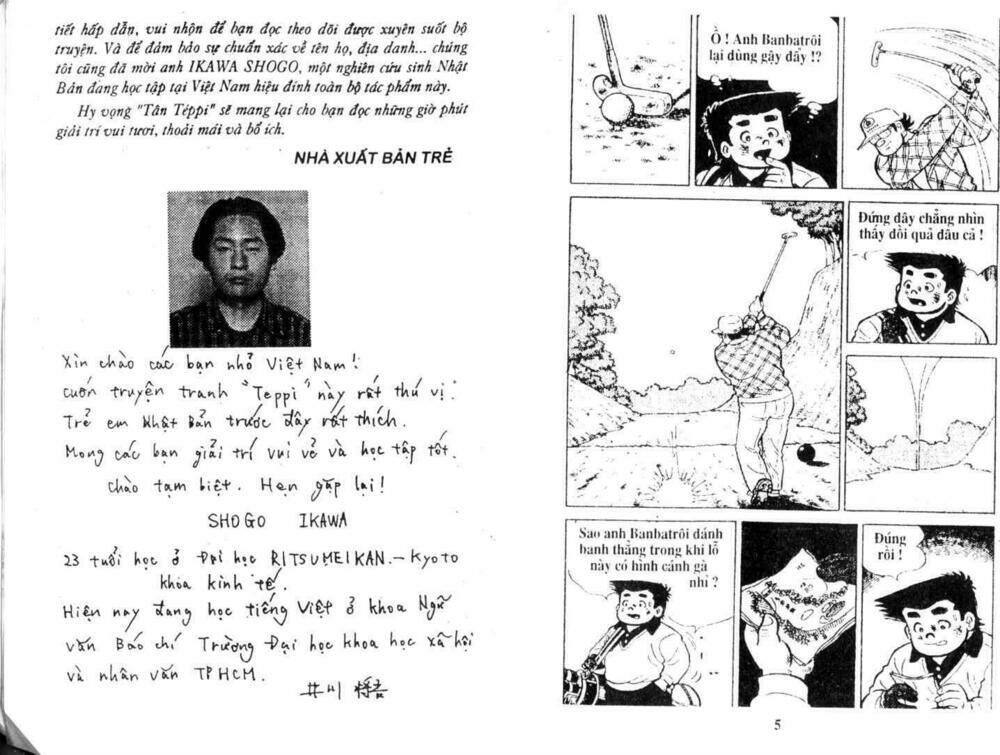 tiết hấp dẫn, vui nhộn để bạn đọc theo dõi được xuyên suốt bộ
truyện. Và để đảm bảo sự chuẩn xác về tên họ, địa danh... chúng
tôi cũng đã mời anh IKAWA SHOGO, một nghiên cứu sinh Nhật
Bản đang học tập tại Việt Nam hiệu đính toàn bộ tác phẩm này.
Hy vọng "Tân Téppi" sẽ mang lại cho bạn đọc những giờ phút
giải trí vui tươi, thoải mái và bổ ích.
NHÀ XUẤT BẢN TRẺ
Xin chào các bạn nhỏ Việt Nam!
cuốn truyện tranh "Teppi" này rất thú vị.
Trẻ em Nhật Bản trước đây rất thích.
Mong các bạn giải trí vui vẻ và học tập tốt.
chào tạm biệt. Hẹn gặp lại!
SHOGO IKAWA
23 tuổi học ở Đại học RITSUMEIKAN. - Kyoto
khoa kinh tế.
Hiện nay đang học tiếng Việt ở khoa Ngữ
văn Báo chí Trường Đại học khoa học xã hội
và nhân văn TP HCM.
井川 将吾
Ồ ! Anh Banbatrôi
lại dùng gậy đẩy !?
Đứng đây chẳng nhìn
thấy đồi quả đâu cả !
Sao anh Banbatrôi đánh
banh thẳng trong khi lỗ
này có hình cánh gà
nhỉ ?
Đúng
rồi !
5